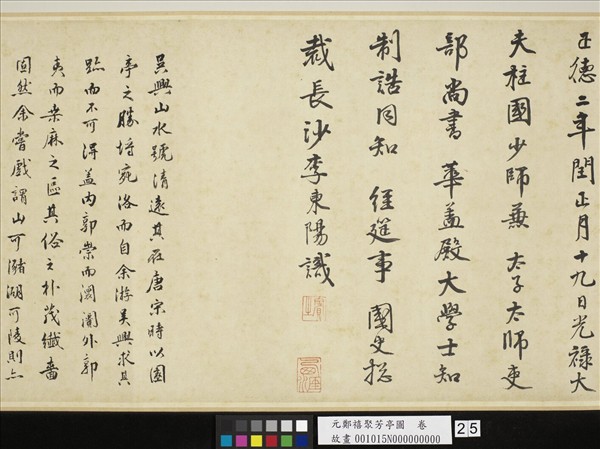 正德二年閏正月十九日光祿大
夫柱國少師兼 太子太師吏
部尚書 華蓋殿大學士知
制誥同知 經筵事 國史揔
裁長沙李東陽識
吳興山水號清遠其在唐宋時以園
亭之勝埒宛洛而自余游吳興求其
跡而不可得蓋內郭崇而闤闠外郭
夷而桑麻之區其俗之朴茂纖嗇
固然余嘗戲謂山可瀦湖可陵則亦
元鄭禧聚芳亭圖 卷
故畫 001015N000000000
25